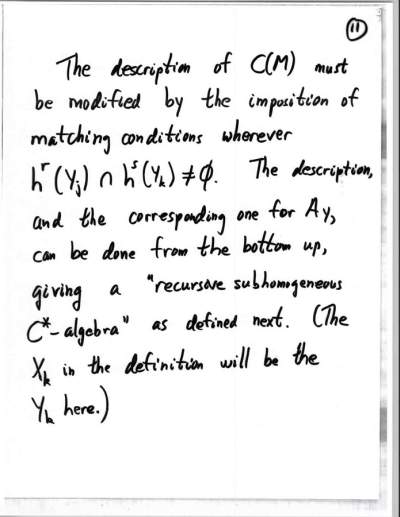 11
The description of C(M) must
be modified by the imposition of
matching conditions wherever
hʳ(Yⱼ) ∩ hˢ(Yₖ) ≠ ∅. The description,
and the corresponding one for A_Y,
can be done from the bottom up,
giving a "recursive subhomogeneous
C*-algebra" as defined next. (The
Xₖ in the definition will be the
Yₖ here.)